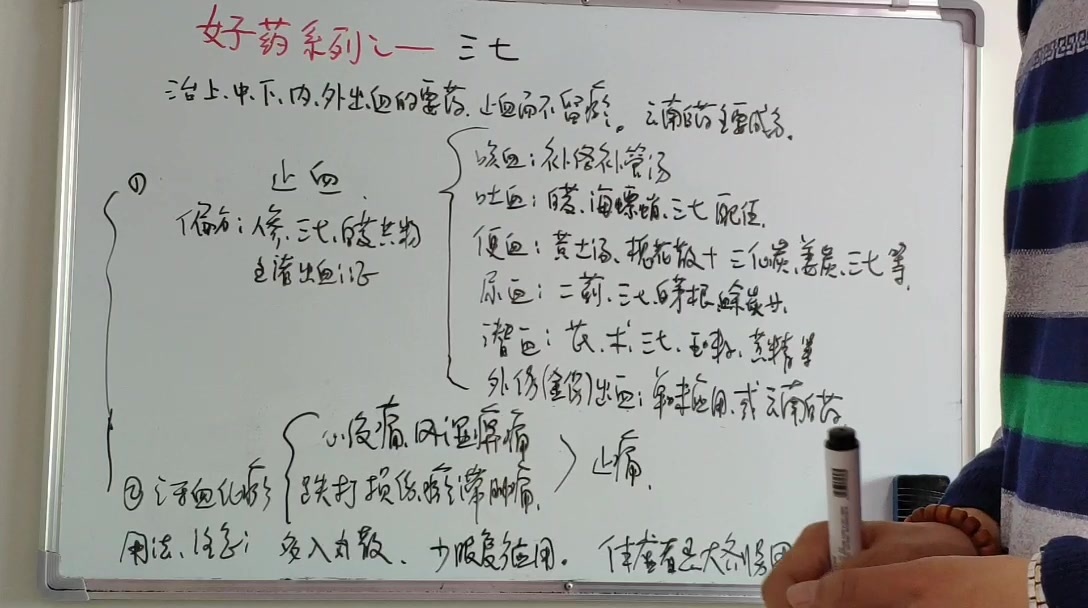 好药系列之一 三七
治上、中、下、内、外出血的要药、止血而不留瘀。云南白药主要成分。
① 止血
偏方：人参、三七、白芨共物
主诸出血证
咳血：补络补管汤
吐血：白芨、海螵蛸、三七配伍。
便血：黄土汤、槐花散+三仙炭、姜炭、三七等。
尿血：三七、白茅根
潜血：芪、术、三七、黄精等
外伤(金伤)出血：单味应用、或云南白药
②活血化瘀
心腹痛、风湿痹痛
跌打损伤、瘀滞肿痛、
止痛、
用法、注意：多入丸散、少服复方应用。